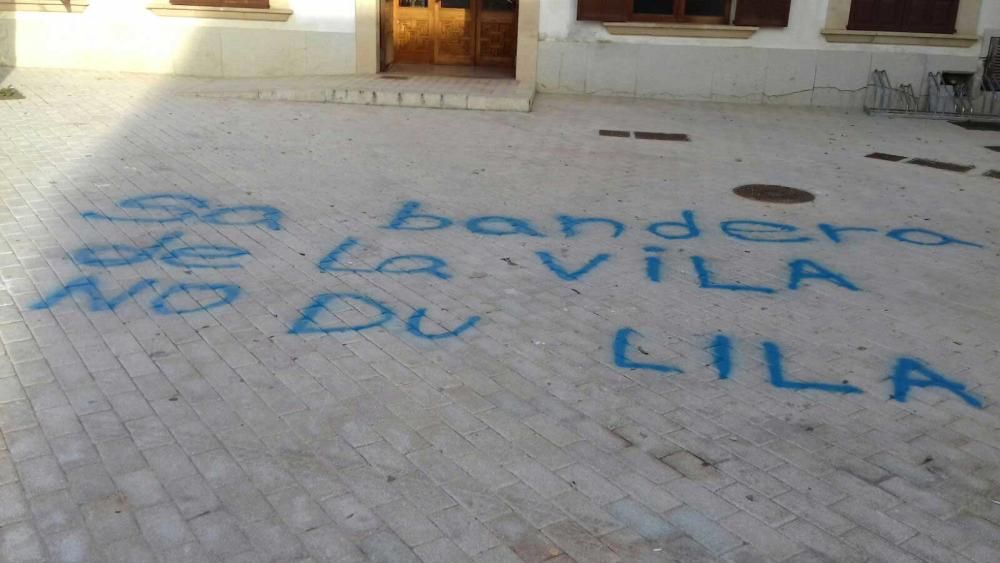 Sa bandera
de La ViLA
NO DU LILA